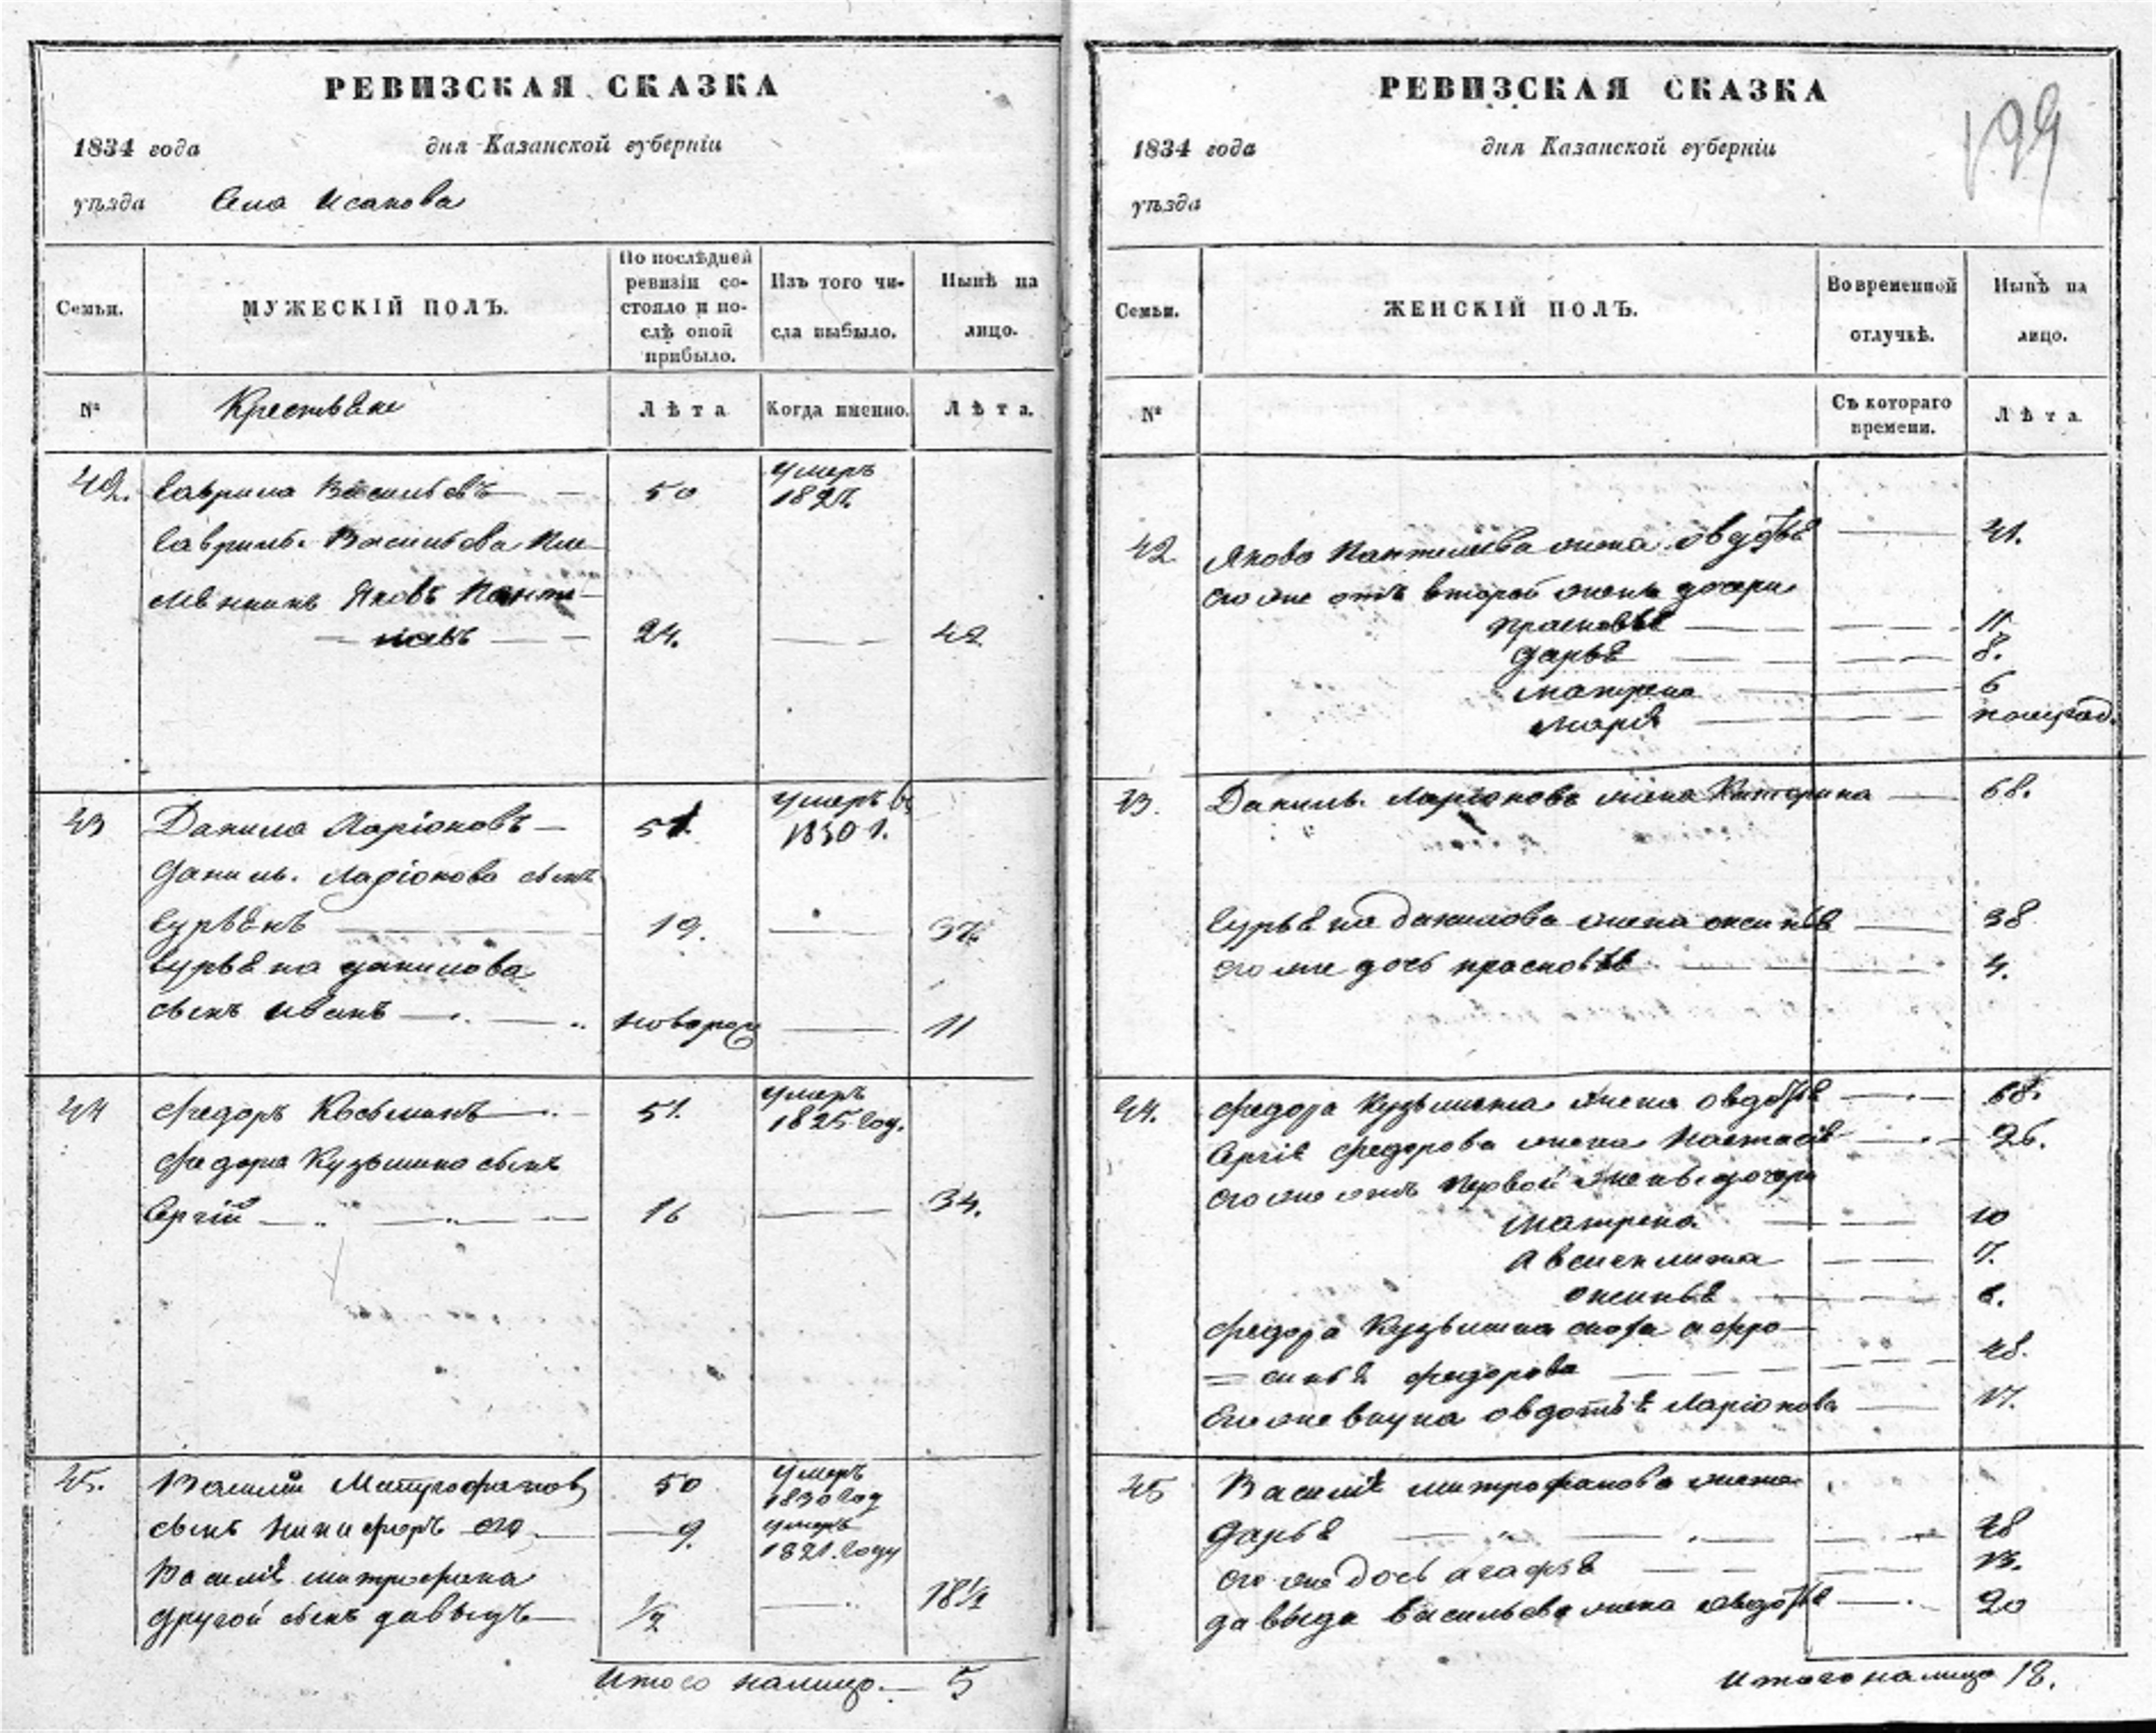 РЕВИЗСКАЯ СКАЗКА
1834 года дня Казанской губерніи
уѣзда Села Исакова
Семьи.
МУЖЕСКІЙ ПОЛЪ.
По послѣдней
ревизіи со-
стояло и по-
слѣ оной
прибыло.
Изъ того чи-
сла выбыло.
Нынѣ на
лицо.
№
Крестьяне
Лѣта
Когда именно.
Лѣта.
42. Гаврила Васильевъ — 50 умеръ
Гаврилы Васильева пле-
мѣнникъ Яковъ Панте-
— леевъ — 24. — 42
43 Данила Ларіоновъ — 51. умеръ въ
1830 г.
Данилы Ларіонова сынъ
Гурьянъ — 19. — 37.
Гурьяна Данилова
сынъ Иванъ — новорож — 11
44 Федоръ Косьминъ — 51. умеръ
1825 год.
Федора Кузьмина сынъ
Сергій — 16 — 34.
45. Василій Митрофанов 50 умеръ
1830 год
сынъ Никифоръ его — 9. умеръ
1821. году
Василія митрофана
другой сынъ давыдъ — 1/2 — 18 1/2
Итого налицо — 5
РЕВИЗСКАЯ СКАЗКА
199
1834 года дня Казанской губерніи
уѣзда
Семьи.
ЖЕНСКІЙ ПОЛЪ.
Во временной
отлучкѣ.
Нынѣ на
лицо.
№
Съ котораго
времени.
Лѣта
42 Якова Пантелеева жена овдотья — 41.
его же отъ второй жены дочери
прасковья — 11
дарья — 8.
матрена — 6
марья — полугод.
43. Данилы Ларіонова жена Катерина — 68.
Гурьяна данилова жена оксинья — 38
его же дочь прасковья — 4.
44. Федора Кузьмина жена овдотья — 68.
Сергія Федорова жена Настасія — 26.
его же отъ первой жены дочери
Матрена — 10
— 7.
оксинья — 6.
Федора Кузьмина сноха афро-
= синья федорова — 48.
Его же внука овдотья Ларіонова — 17.
45 Василія митрофанова жена
Дарья — 48
его же дочь агафья — 13.
давыда васильева жена овдотья — 20
Итого налицо 18.